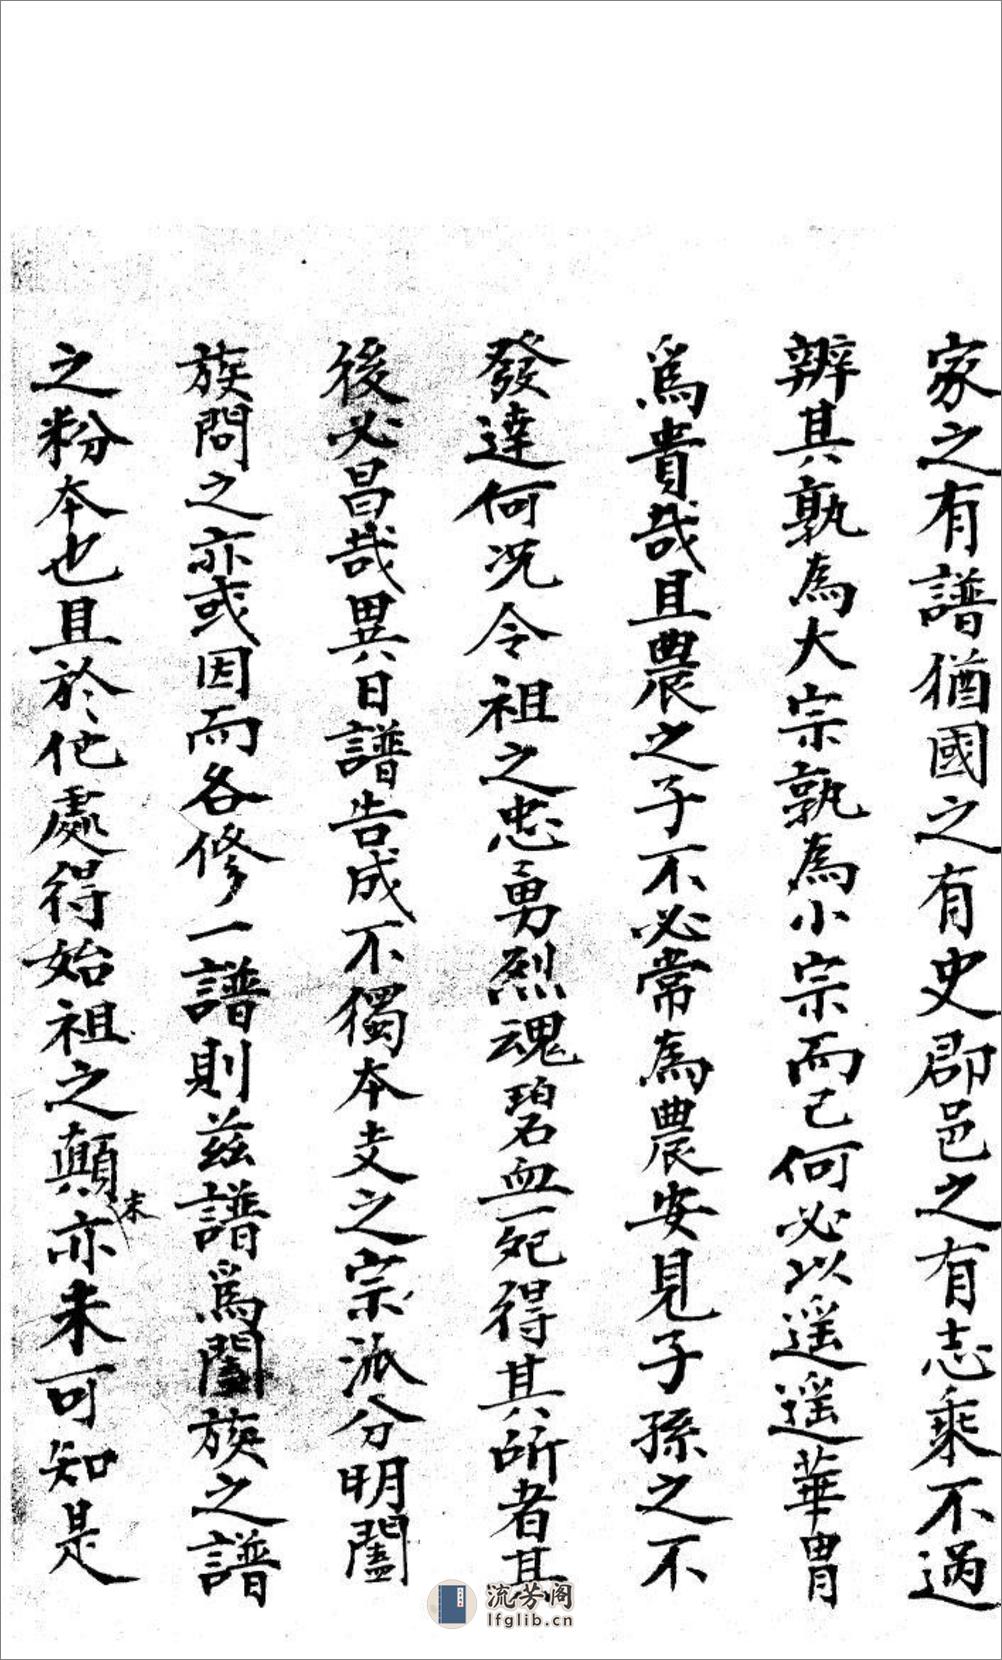 家之有譜猶國之有史郡邑之有志乘不過
辨其孰為大宗孰為小宗而已何必以遥遥華胄
爲貴哉且農之子不必常為農安見子孫之不
發達何况令祖之忠勇烈魂碧血死得其所者其
後必昌哉異日譜告成不獨本支之宗派分明闔
族問之亦或因而各修一譜則兹譜爲闔族之譜
之粉本也且於他處得始祖之顛末亦未可知是
流芳阁
lfglib.cn